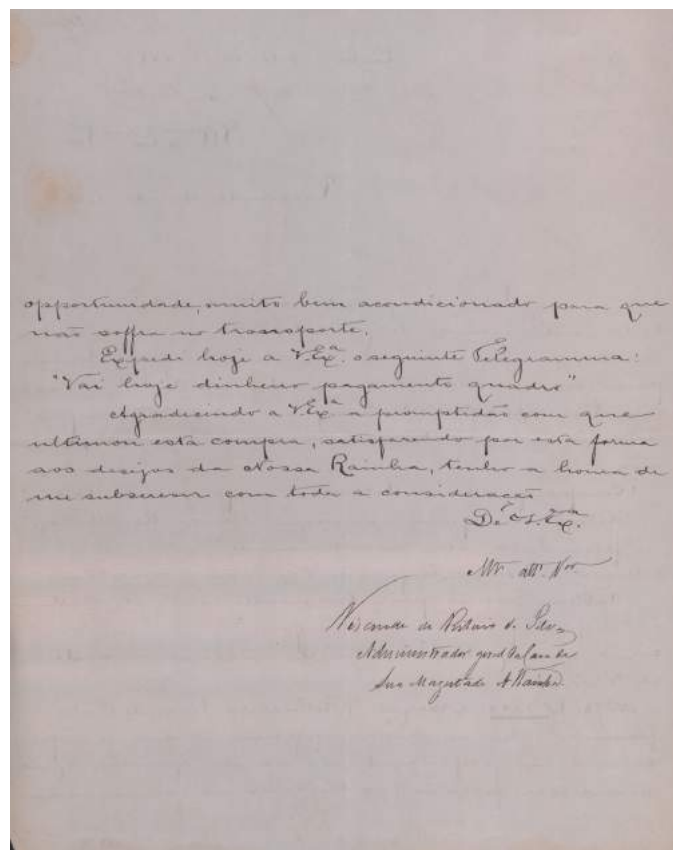 opportunidade, muito bem acondicionado para que
não soffra no transporte.
Expedi hoje a V.Exª. o seguinte Telegramma:
"Vai hoje dinheiro pagamento quadro"
Agradecindo a V.Exª a promptidão com que
ultimou esta compra, satisfazendo por esta forma
aos desejos da Nossa Rainha, tenho a honra de
me subscrever com toda a consideração
De V.Exª.
Mtº. attº. Vor.
Visconde de
Administrador geral da Casa de
Sua Magestade A Rainha.